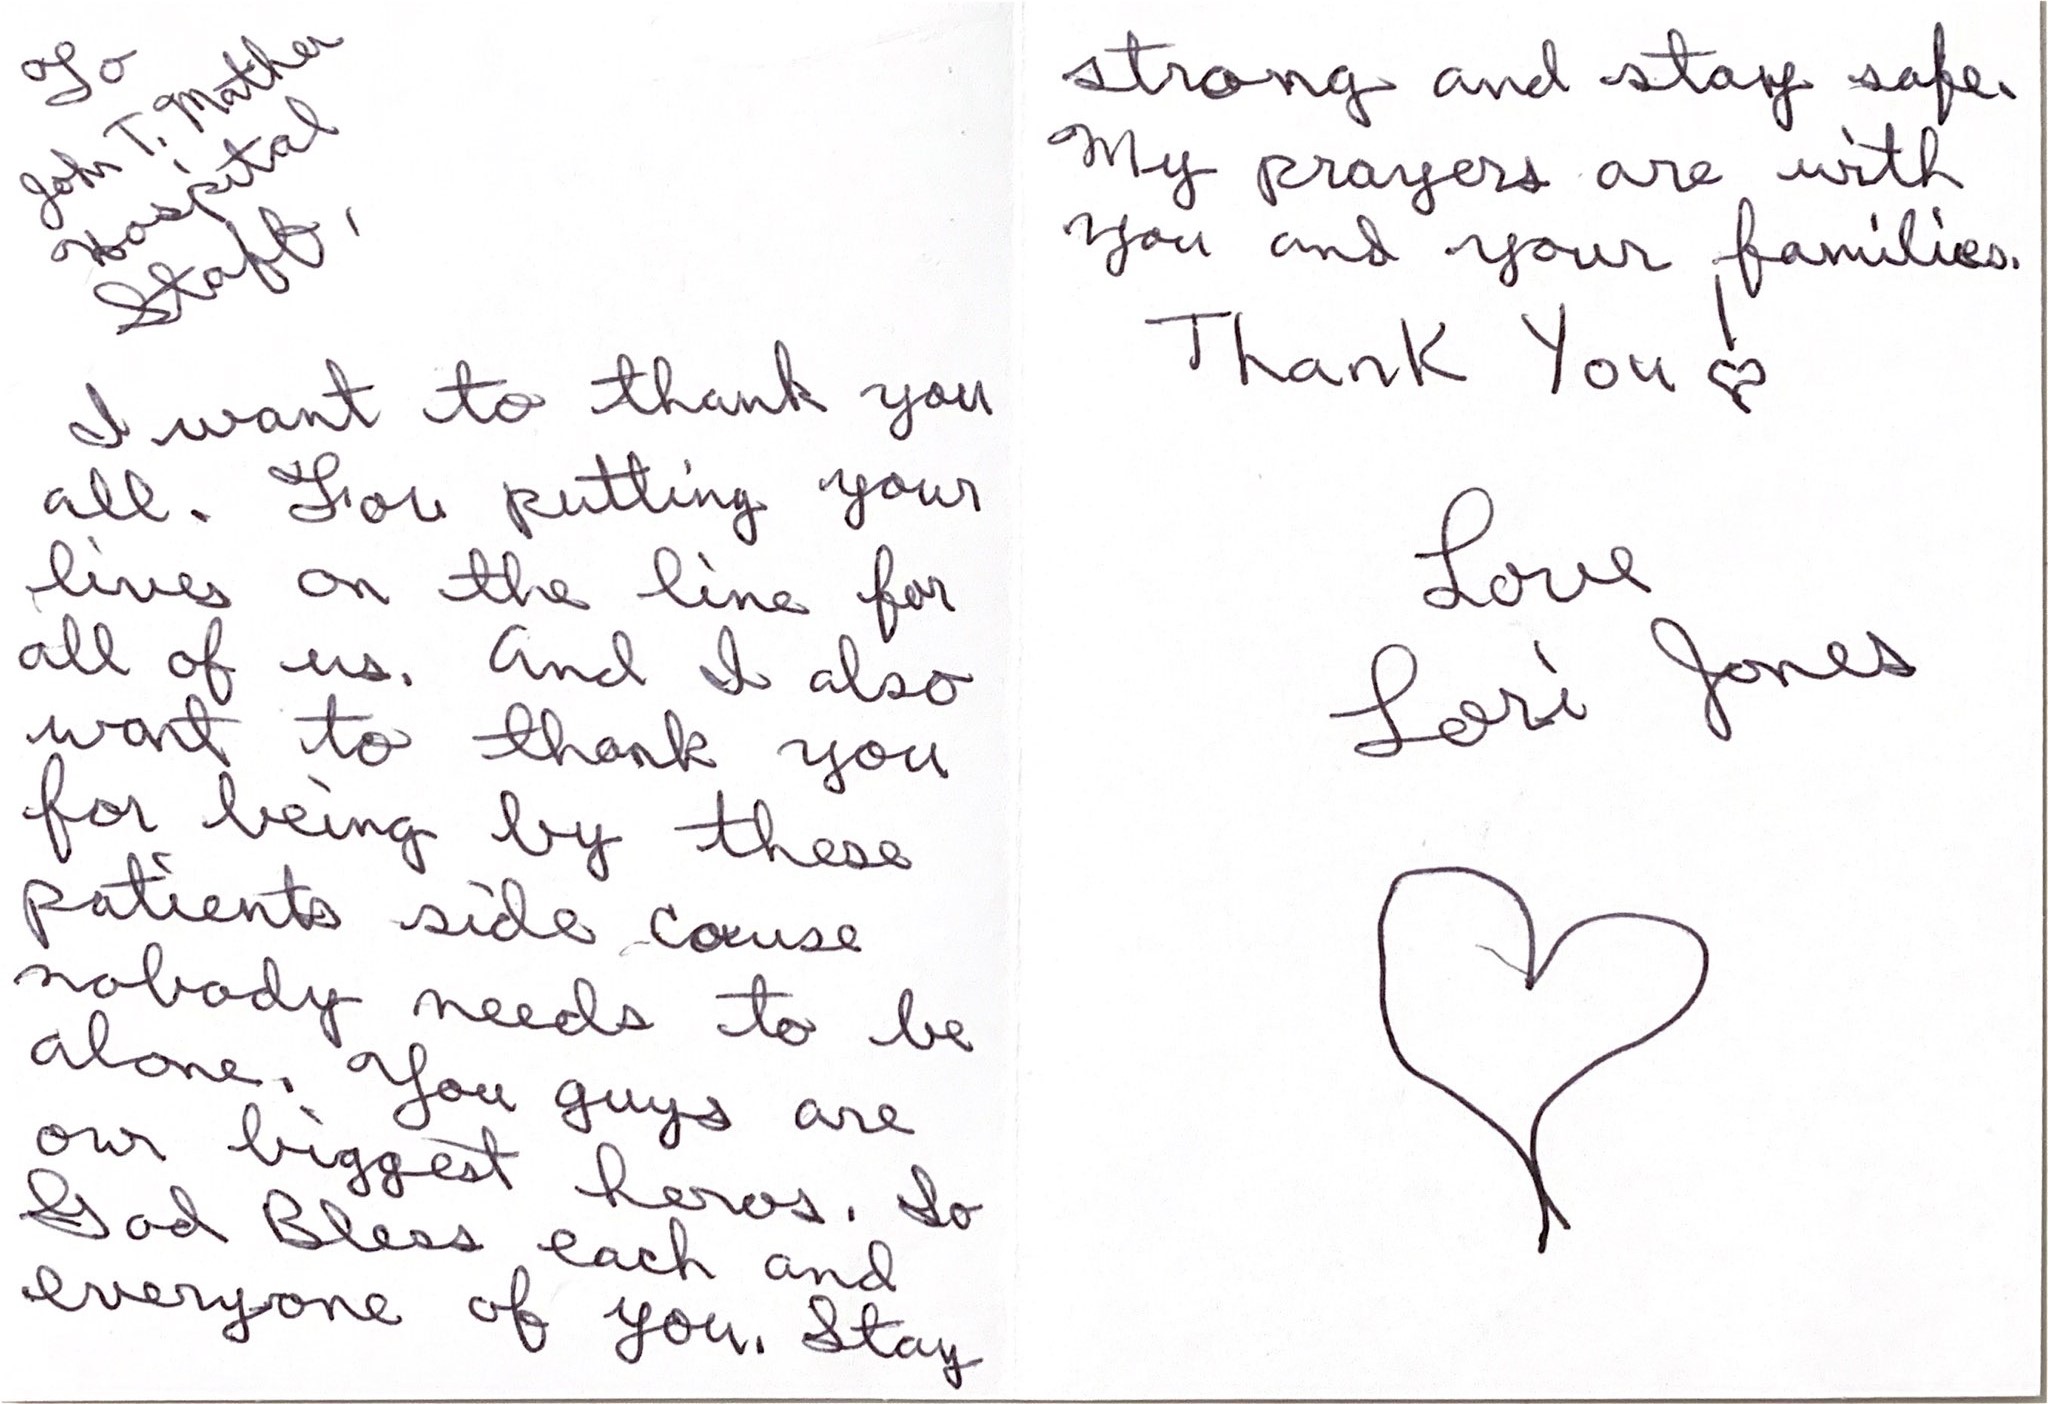 To
John T. Mather
Hospital
Staff,
I want to thank you
all. For putting your
lives on the line for
all of us. And I also
want to thank you
for being by these
patients side cause
nobody needs to be
alone. You guys are
our biggest heros. So
God Bless each and
everyone of you. Stay
strong and stay safe.
My prayers are with
you and your families.
Thank You!
Love
Lori Jones